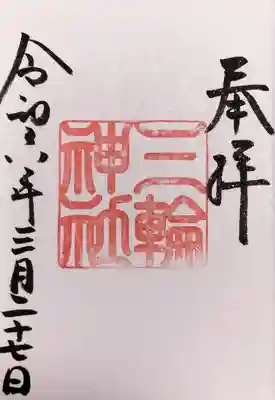 奉拝
三輪
神社
令和六年三月二十七日